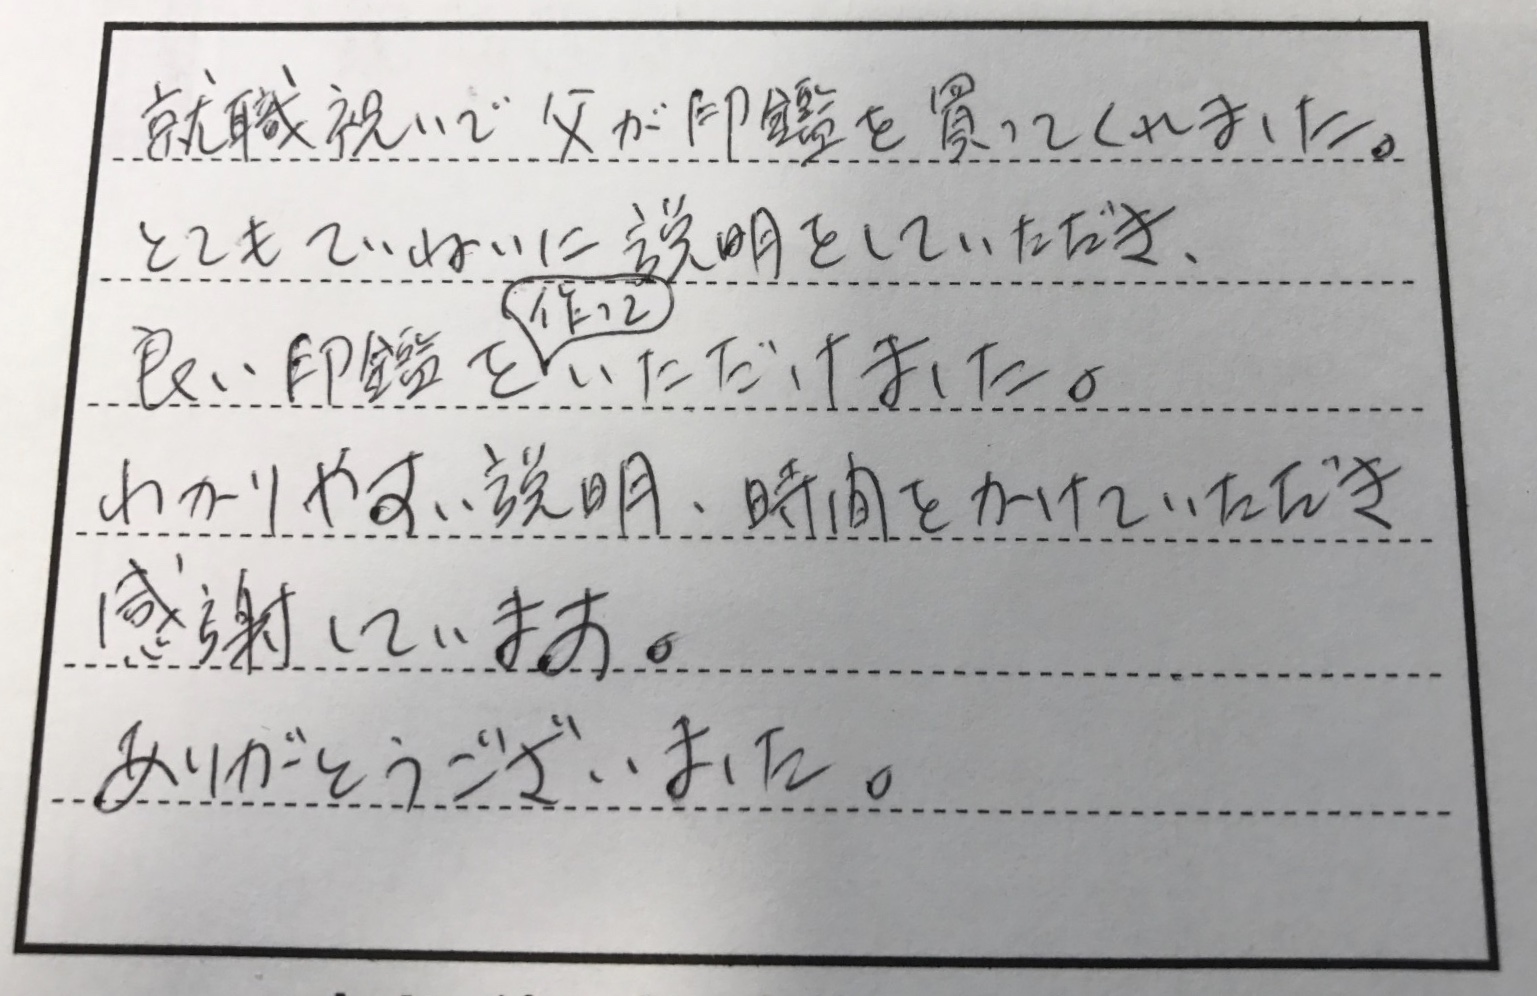 就職祝いで父が印鑑を買ってくれました。
とてもていねいに説明をしていただき、
良い印鑑を作っていただけました。
わかりやすい説明、時間をかけていただき
感謝しています。
ありがとうございました。